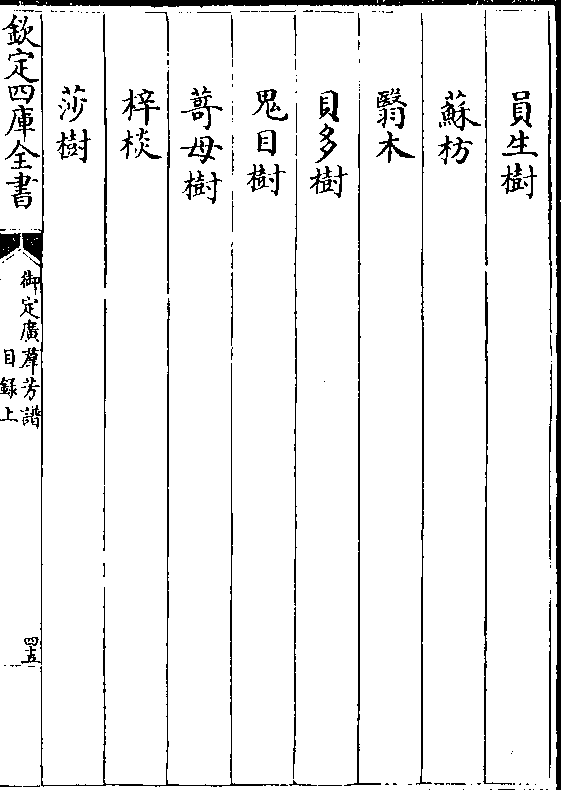 員生樹
蘇枋
翳木
貝多樹
鬼目樹
蒪母樹
梓棪
莎樹
欽定四庫全書
御定廣羣芳譜
目録上
四五